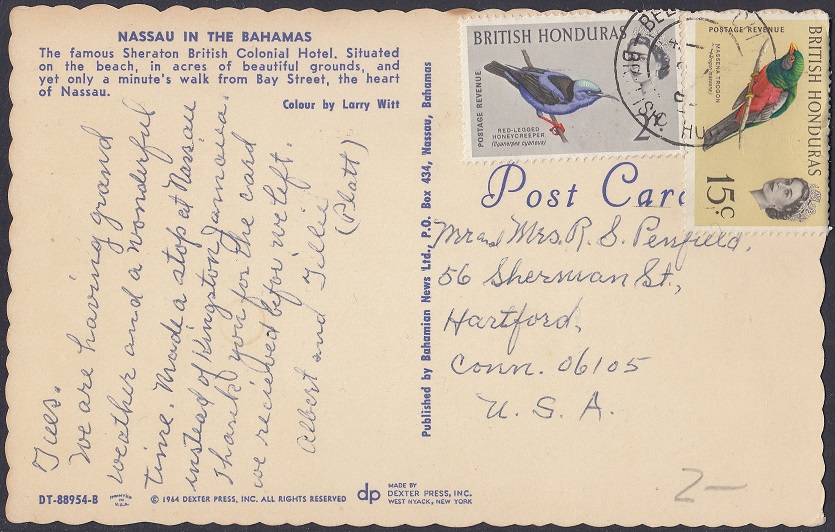 NASSAU IN THE BAHAMAS
The famous Sheraton British Colonial Hotel. Situated
on the beach, in acres of beautiful grounds, and
yet only a minute's walk from Bay Street, the heart
of Nassau.
Colour by Larry Witt
Tues.
We are having grand
weather and a wonderful
time. Made a stop at Nassau
instead of Kingston Jamaica.
Thank you for the card
we recieved befor we left.
Albert and Tillie
(Platt)
DT-88954-B
PRINTED IN U.S.A.
© 1964 DEXTER PRESS, INC. ALL RIGHTS RESERVED
dp
MADE BY
DEXTER PRESS, INC.
WEST NYACK, NEW YORK
Published by Bahamian News Ltd., P.O. Box 434, Nassau, Bahamas
BRITISH HONDURAS
POSTAGE REVENUE
RED-LEGGED
HONEYCREEPER
(Cyanerpes cyaneus)
2c.
POSTAGE REVENUE
MASSENA TROGON
BRITISH HONDURAS
15c
Post Card
Mr and Mrs. R. S. Penfield,
56 Sherman St.,
Hartford,
Conn. 06105
U. S. A.
2-